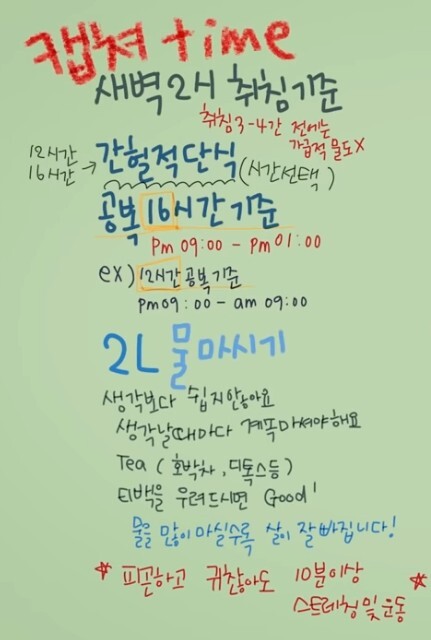 캡쳐 time
새벽 2시 취침기준
취침 3-4간 전에는
가급적 물도X
12시간
16시간 → 간헐적단식 (시간선택)
공복 16시간 기준
Pm 09:00 - Pm 01:00
ex) 12시간 공복 기준
pm 09:00 - am 09:00
2L 물 마시기
생각보다 쉽지안아요
생각날때마다 계쪽마셔야해요
Tea (호박차, 디톡스등)
티백을 우려드시면 Good!
물을 많이 마실수록 살이 잘빠집니다!
* 피곤하고 귀찮아도 10분이상 *
스트레칭및운동